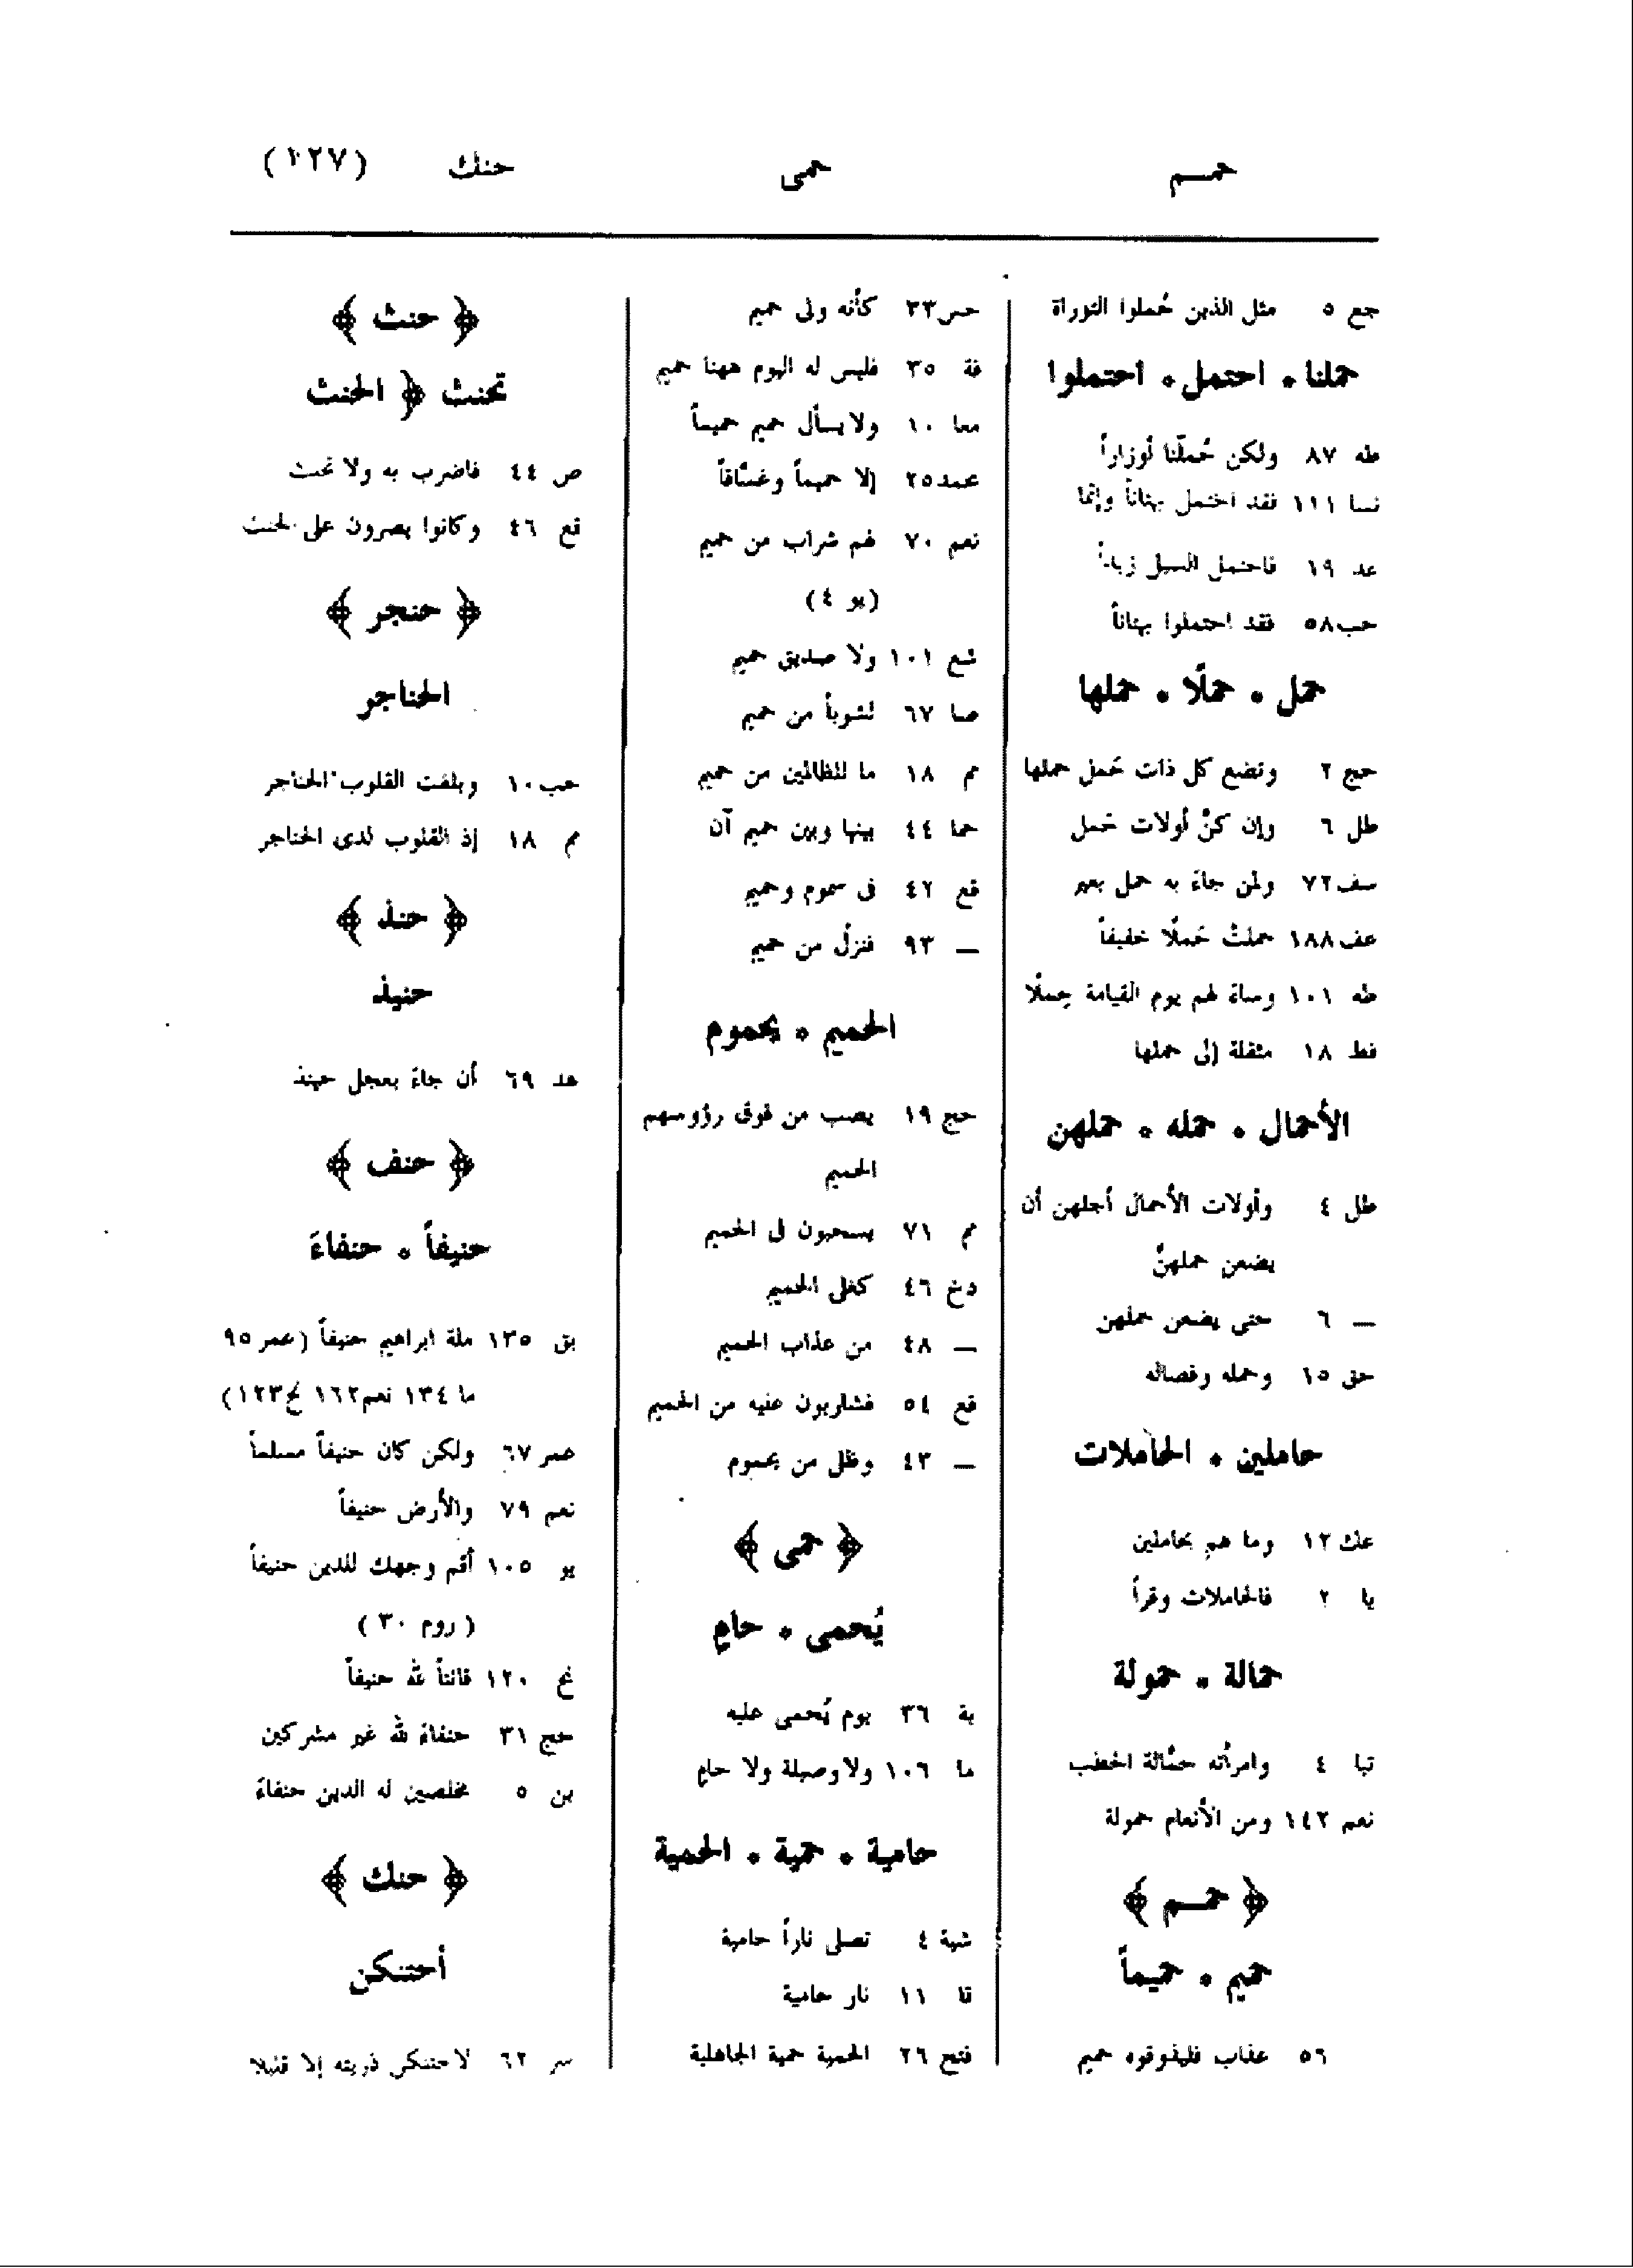 حمـم حمى حنك (١٢٧)
جع ٥ مثل الذين حُملوا التوراة
حملنا ٠ احتمل ٠ احتملوا
طه ٨٧ ولكن حُملّنا أوزاراً
نسا ١١١ فقد احتمل بهتاناً وإثما
عد ١٩ فاحتمل السيل زبداً
حب٥٨ فقد احتملوا بهتاناً
حمل ٠ حملًا ٠ حملها
حج ٢ وتضع كل ذات حَمل حملها
طل ٦ وإن كنَّ أولات حَمل
سف٧٢ ولمن جاءَ به حمل بعير
عف١٨٨ حملتْ حَملًا خفيفاً
طه ١٠١ وساءَ لهم يوم القيامة حِملًا
فط ١٨ مثقلة إلى حملها
الأحمال ٠ حمله ٠ حملهن
طل ٤ وأولات الأحمال أجلهن أن
يضعن حملهنَّ
— ٦ حتى يضعن حملهن
حق ١٥ وحمله وفصاله
حاملين ٠ الحاملات
عك ١٢ وما هم بحاملين
يا ٢ فالحاملات وقراً
حمالة ٠ حمولة
تبا ٤ وامرأته حمَّالة الحطب
نعم ١٤٢ ومن الأنعام حمولة
﴿ حمـم ﴾
حميم ٠ حميماً
٥٦ عذاب فليذوقوه حميم
حس٣٣ كأنه ولى حميم
قة ٣٥ فليس له اليوم ههنا حميم
معا ١٠ ولا يسأل حميم حميماً
عمد٢٥ إلا حميماً وغسَّاقاً
نعم ٧٠ لهم شراب من حميم
(يو ٤)
شع ١٠١ ولا صديق حميم
صا ٦٧ لشوباً من حميم
مم ١٨ ما للظالمين من حميم
حما ٤٤ بينها وبين حميم آن
قع ٤٢ فى سموم وحميم
— ٩٣ فنزلٌ من حميم
الحميم ٠ يحموم
حج ١٩ يصب من فوق رؤوسهم
الحميم
مم ٧١ يسحبون فى الحميم
دخ ٤٦ كغلى الحميم
— ٤٨ من عذاب الحميم
قع ٥٤ فشاربون عليه من الحميم
— ٤٣ وظل من يحموم
﴿ حمى ﴾
يُحمى ٠ حامٍ
بة ٣٦ يوم يُحمى عليه
ما ١٠٦ ولا وصيلة ولا حامٍ
حامية ٠ حمية ٠ الحمية
شية ٤ تصلى ناراً حامية
قا ١١ نار حامية
فتح ٢٦ الحمية حمية الجاهلية
﴿ حنث ﴾
تحنث ﴿ الحنث
ص ٤٤ فاضرب به ولا تحنث
قع ٤٦ وكانوا يصرون على الحنث
﴿ حنجر ﴾
الحناجر
حب١٠ وبلغت القلوب الحناجر
مم ١٨ إذ القلوب لدى الحناجر
﴿ حنذ ﴾
حنيذ
هد ٦٩ أن جاءَ بعجل حنيذ
﴿ حنف ﴾
حنيفاً ٠ حنفاءَ
بق ١٣٥ ملة ابراهيم حنيفاً (عمر ٩٥
ما ١٣٤ نعم١٦٢ نح١٢٣)
عمر ٦٧ ولكن كان حنيفاً مسلماً
نعم ٧٩ والأرض حنيفاً
يو ١٠٥ أقم وجهك للدين حنيفاً
( روم ٣٠ )
نح ١٢٠ قانتاً لله حنيفاً
حج ٣١ حنفاءَ لله غير مشركين
بن ٥ مخلصين له الدين حنفاءَ
﴿ حنك ﴾
أحتنكن
سر ٦٢ لاحتنكن ذريته إلا قليلا